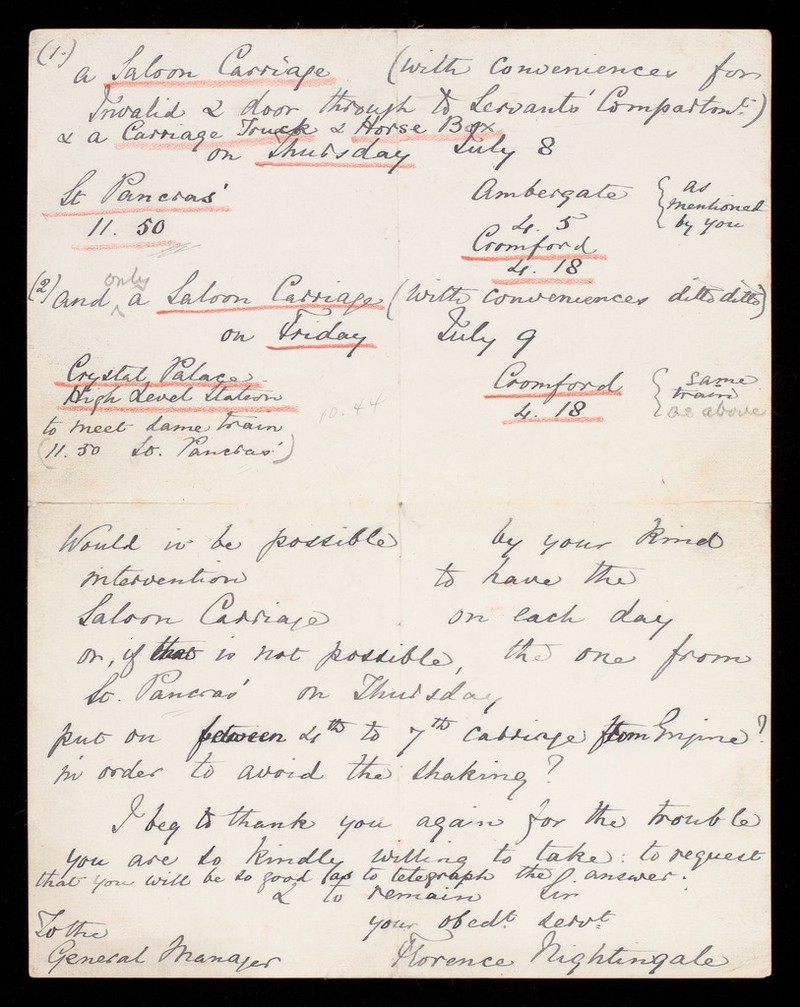 (1.)
a Saloon Carriage (with conveniences for
Invalid & door through to Servants' Compartmt.)
& a Carriage Truck & Horse Box
on Thursday July 8
St Pancras' Ambergate { as
mentioned
by you
11. 50 4. 5
Cromford
4. 18
(2) and only a Saloon Carriage (with conveniences ditto ditto)
on Friday July 9
Crystal Palace Cromford { same
High Level Station train
10.44 4. 18 as above
to meet same train
(11.50 St. Pancras')
Would it be possible by your kind
intervention to have the
Saloon Carriage on each day
or, if that is not possible, the one from
St. Pancras' on Thursday,
put on between 4th to 7th carriage from Engine?
in order to avoid the shaking?
I beg to thank you again for the trouble
you are so kindly willing to take: to request
that you will be so good as to telegraph the answer:
& to remain Sir
your obedt. servt.
To the
General Manager Florence Nightingale